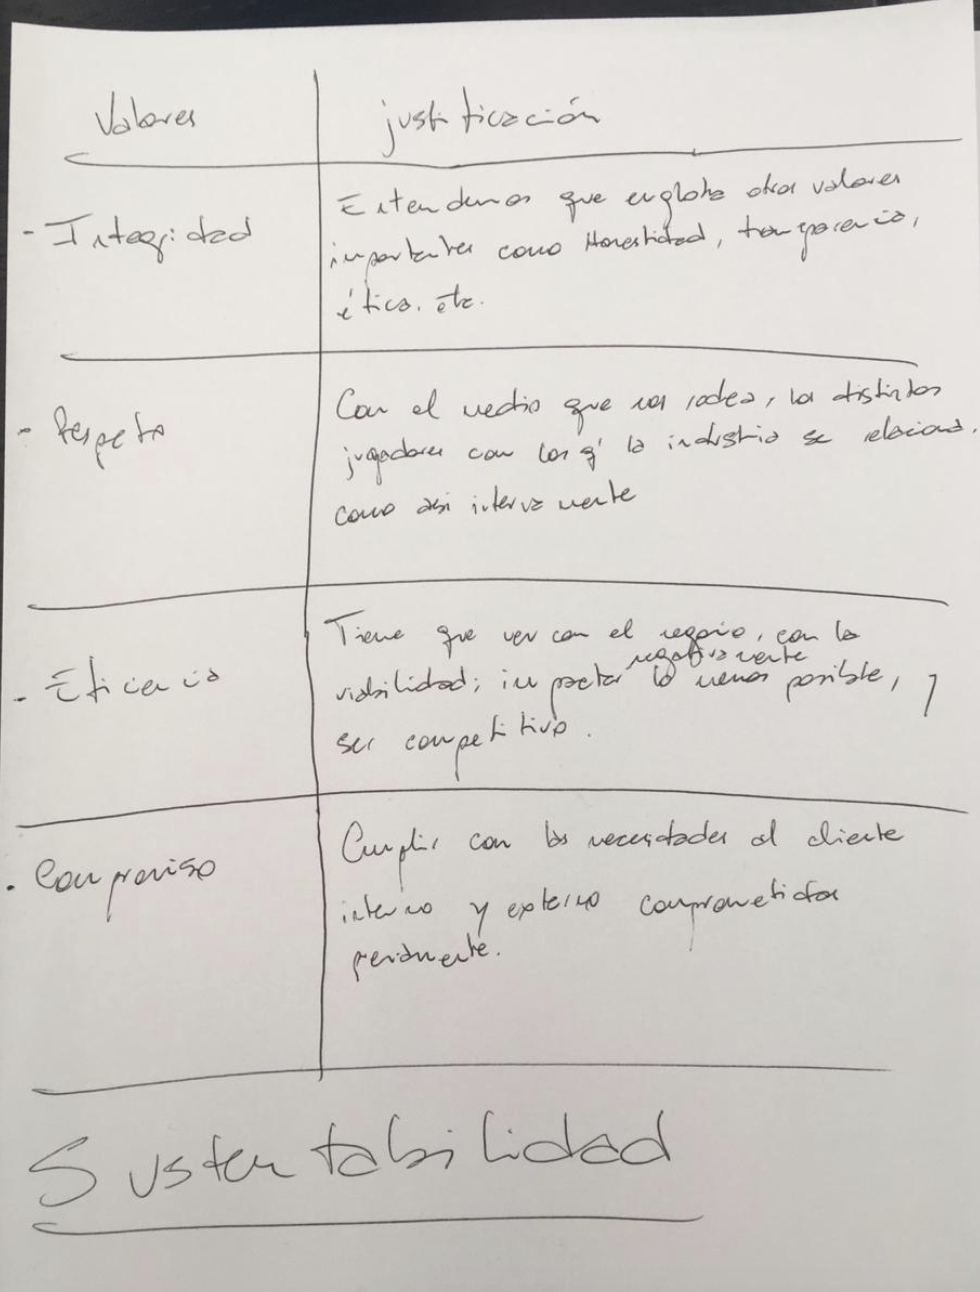 Valores justificación
- Integridad
Entendemos que engloba otros valores
importantes como Honestidad, transparencia,
ética. etc.
- Respeto
Con el medio que nos rodea, los distintos
jugadores con los q' la industria se relaciona.
como asi internamente
- Eficiencia
Tiene que ver con el negocio, con la
negativamente
viabilidad; impactar lo menos posible, y
ser competitivo.
- Compromiso
Cumplir con las necesidades al cliente
interno y externo comprometidos
Sustentabilidad